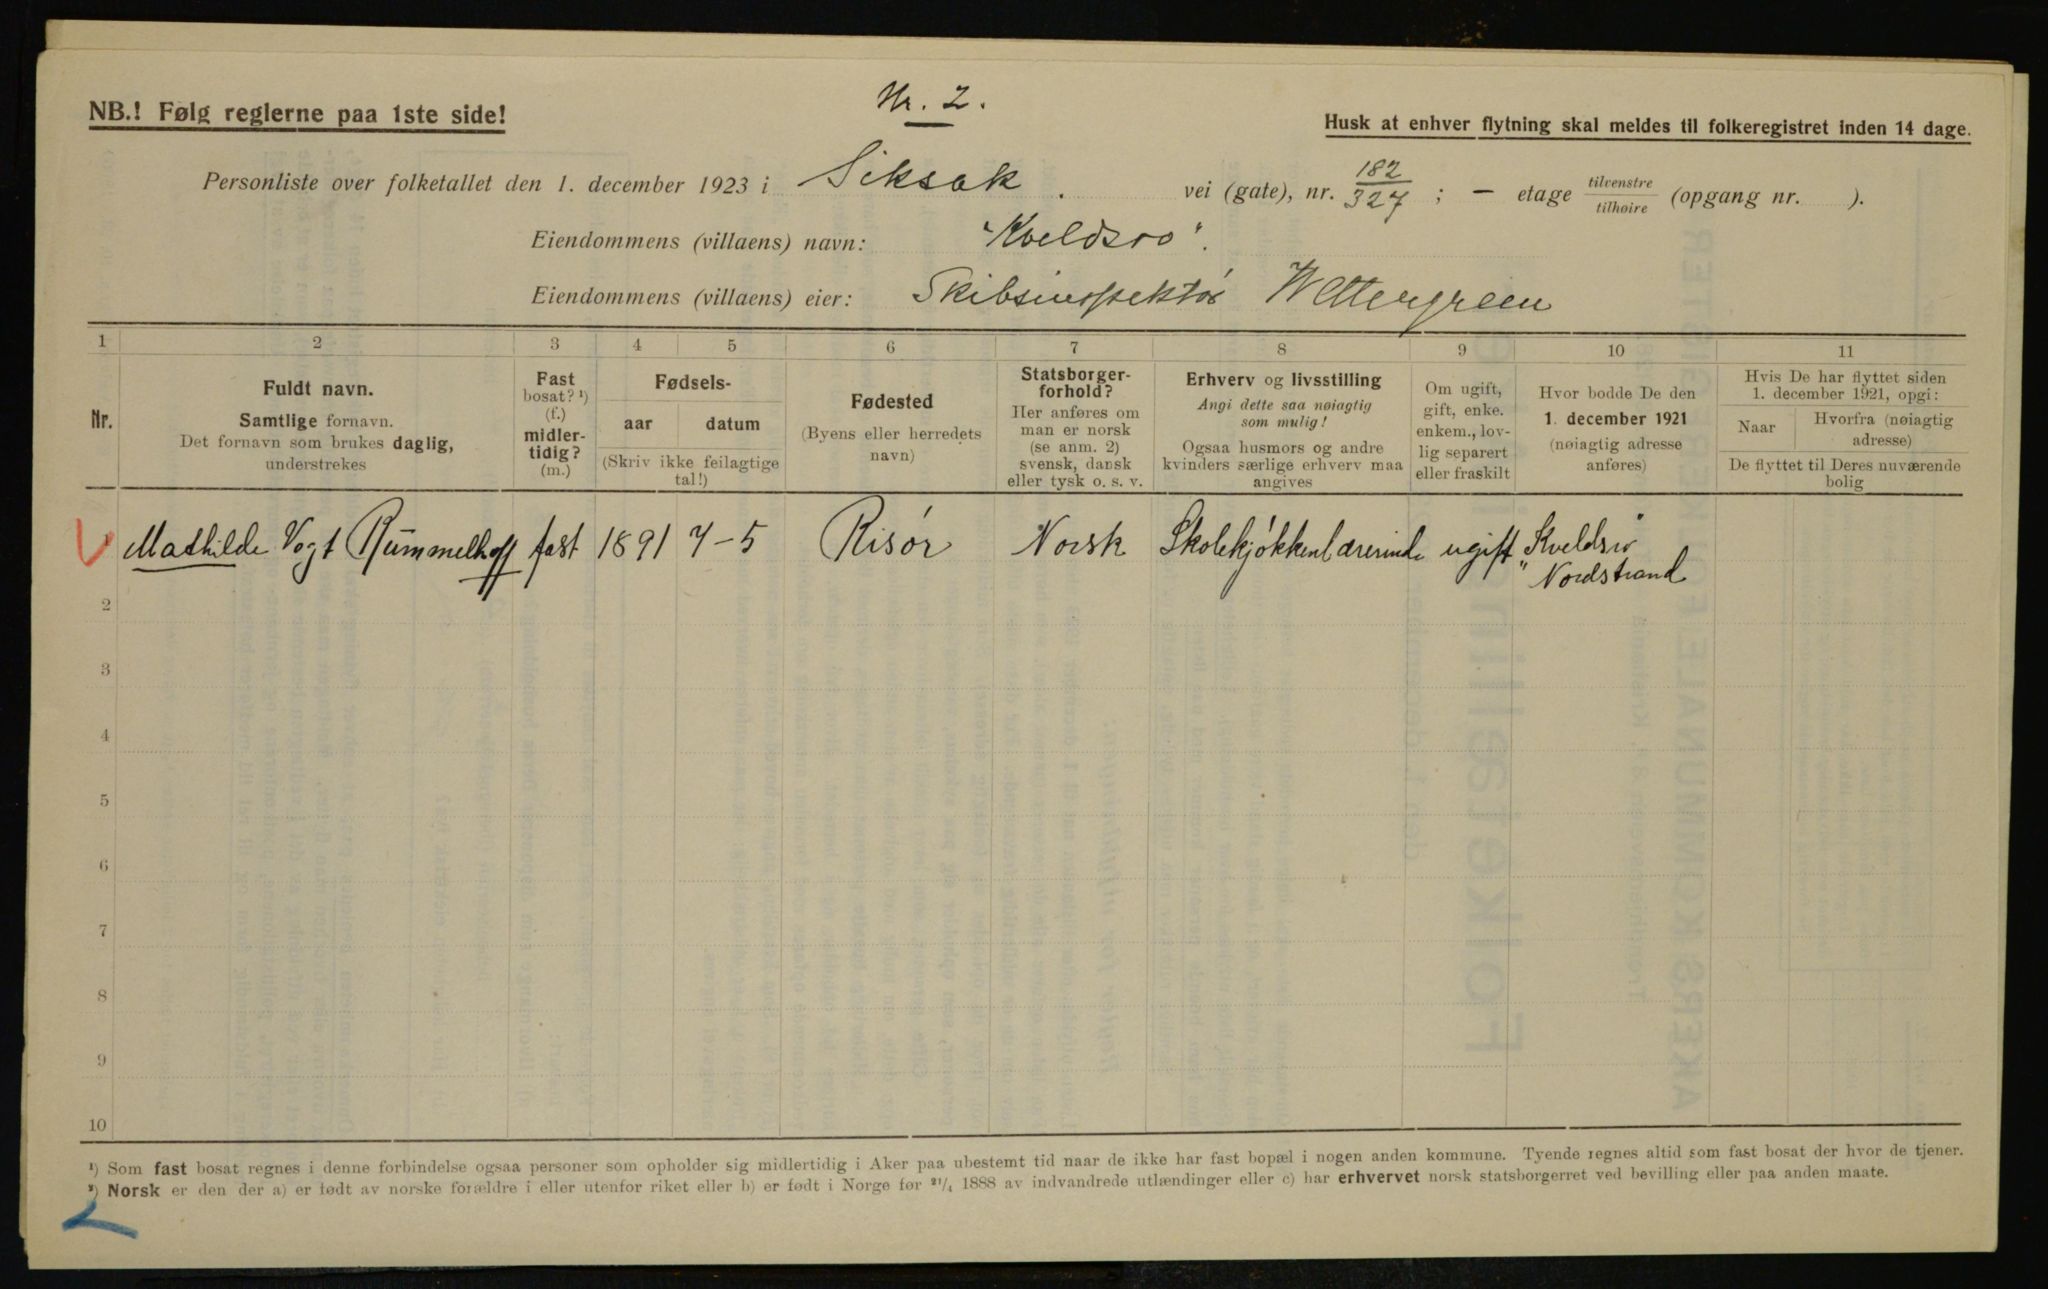 Nr. 2.
NB.! Følg reglerne paa 1ste side!
Husk at enhver flytning skal meldes til folkeregistret inden 14 dage.
Personliste over folketallet den 1. december 1923 i Siksak. vei (gate), nr. 182/327 ; – etage tilvenstre/tilhøire (opgang nr. ).
Eiendommens (villaens) navn: "Kveldsro".
Eiendommens (villaens) eier: Skibsinspektør Wettergreen
1 2 3 4 5 6 7 8 9 10 11
Nr.
Fuldt navn.
Samtlige fornavn.
Det fornavn som brukes daglig,
understrekes
Fast
bosat? ¹)
(f.)
midler-
tidig?
(m.)
Fødsels-
aar datum
(Skriv ikke feilagtige
tal!)
Fødested
(Byens eller herredets
navn)
Statsborger-
forhold?
Her anføres om
man er norsk
(se anm. 2)
svensk, dansk
eller tysk o. s. v.
Erhverv og livsstilling
Angi dette saa nøiagtig
som mulig!
Ogsaa husmors og andre
kvinders særlige erhverv maa
angives
Om ugift,
gift, enke.
enkem., lov-
lig separert
eller fraskilt
Hvor bodde De den
1. december 1921
(nøiagtig adresse
anføres)
Hvis De har flyttet siden
1. december 1921, opgi:
Naar
Hvorfra (nøiagtig
adresse)
De flyttet til Deres nuværende
bolig
1 Mathilde Vogt Rummelhoff fast 1891 7-5 Risør Norsk Skolekjøkkenlærerinde ugift "Kveldsro"
Nordstrand
2
3
4
5
6
7
8
9
10
¹) Som fast bosat regnes i denne forbindelse ogsaa personer som opholder sig midlertidig i Aker paa ubestemt tid naar de ikke har fast bopæl i nogen anden kommune. Tyende regnes altid som fast bosat der hvor de tjener.
²) Norsk er den der a) er født av norske forældre i eller utenfor riket eller b) er født i Norge før ²¹/₄ 1888 av indvandrede utlændinger eller c) har erhvervet norsk statsborgerret ved bevilling eller paa anden maate.